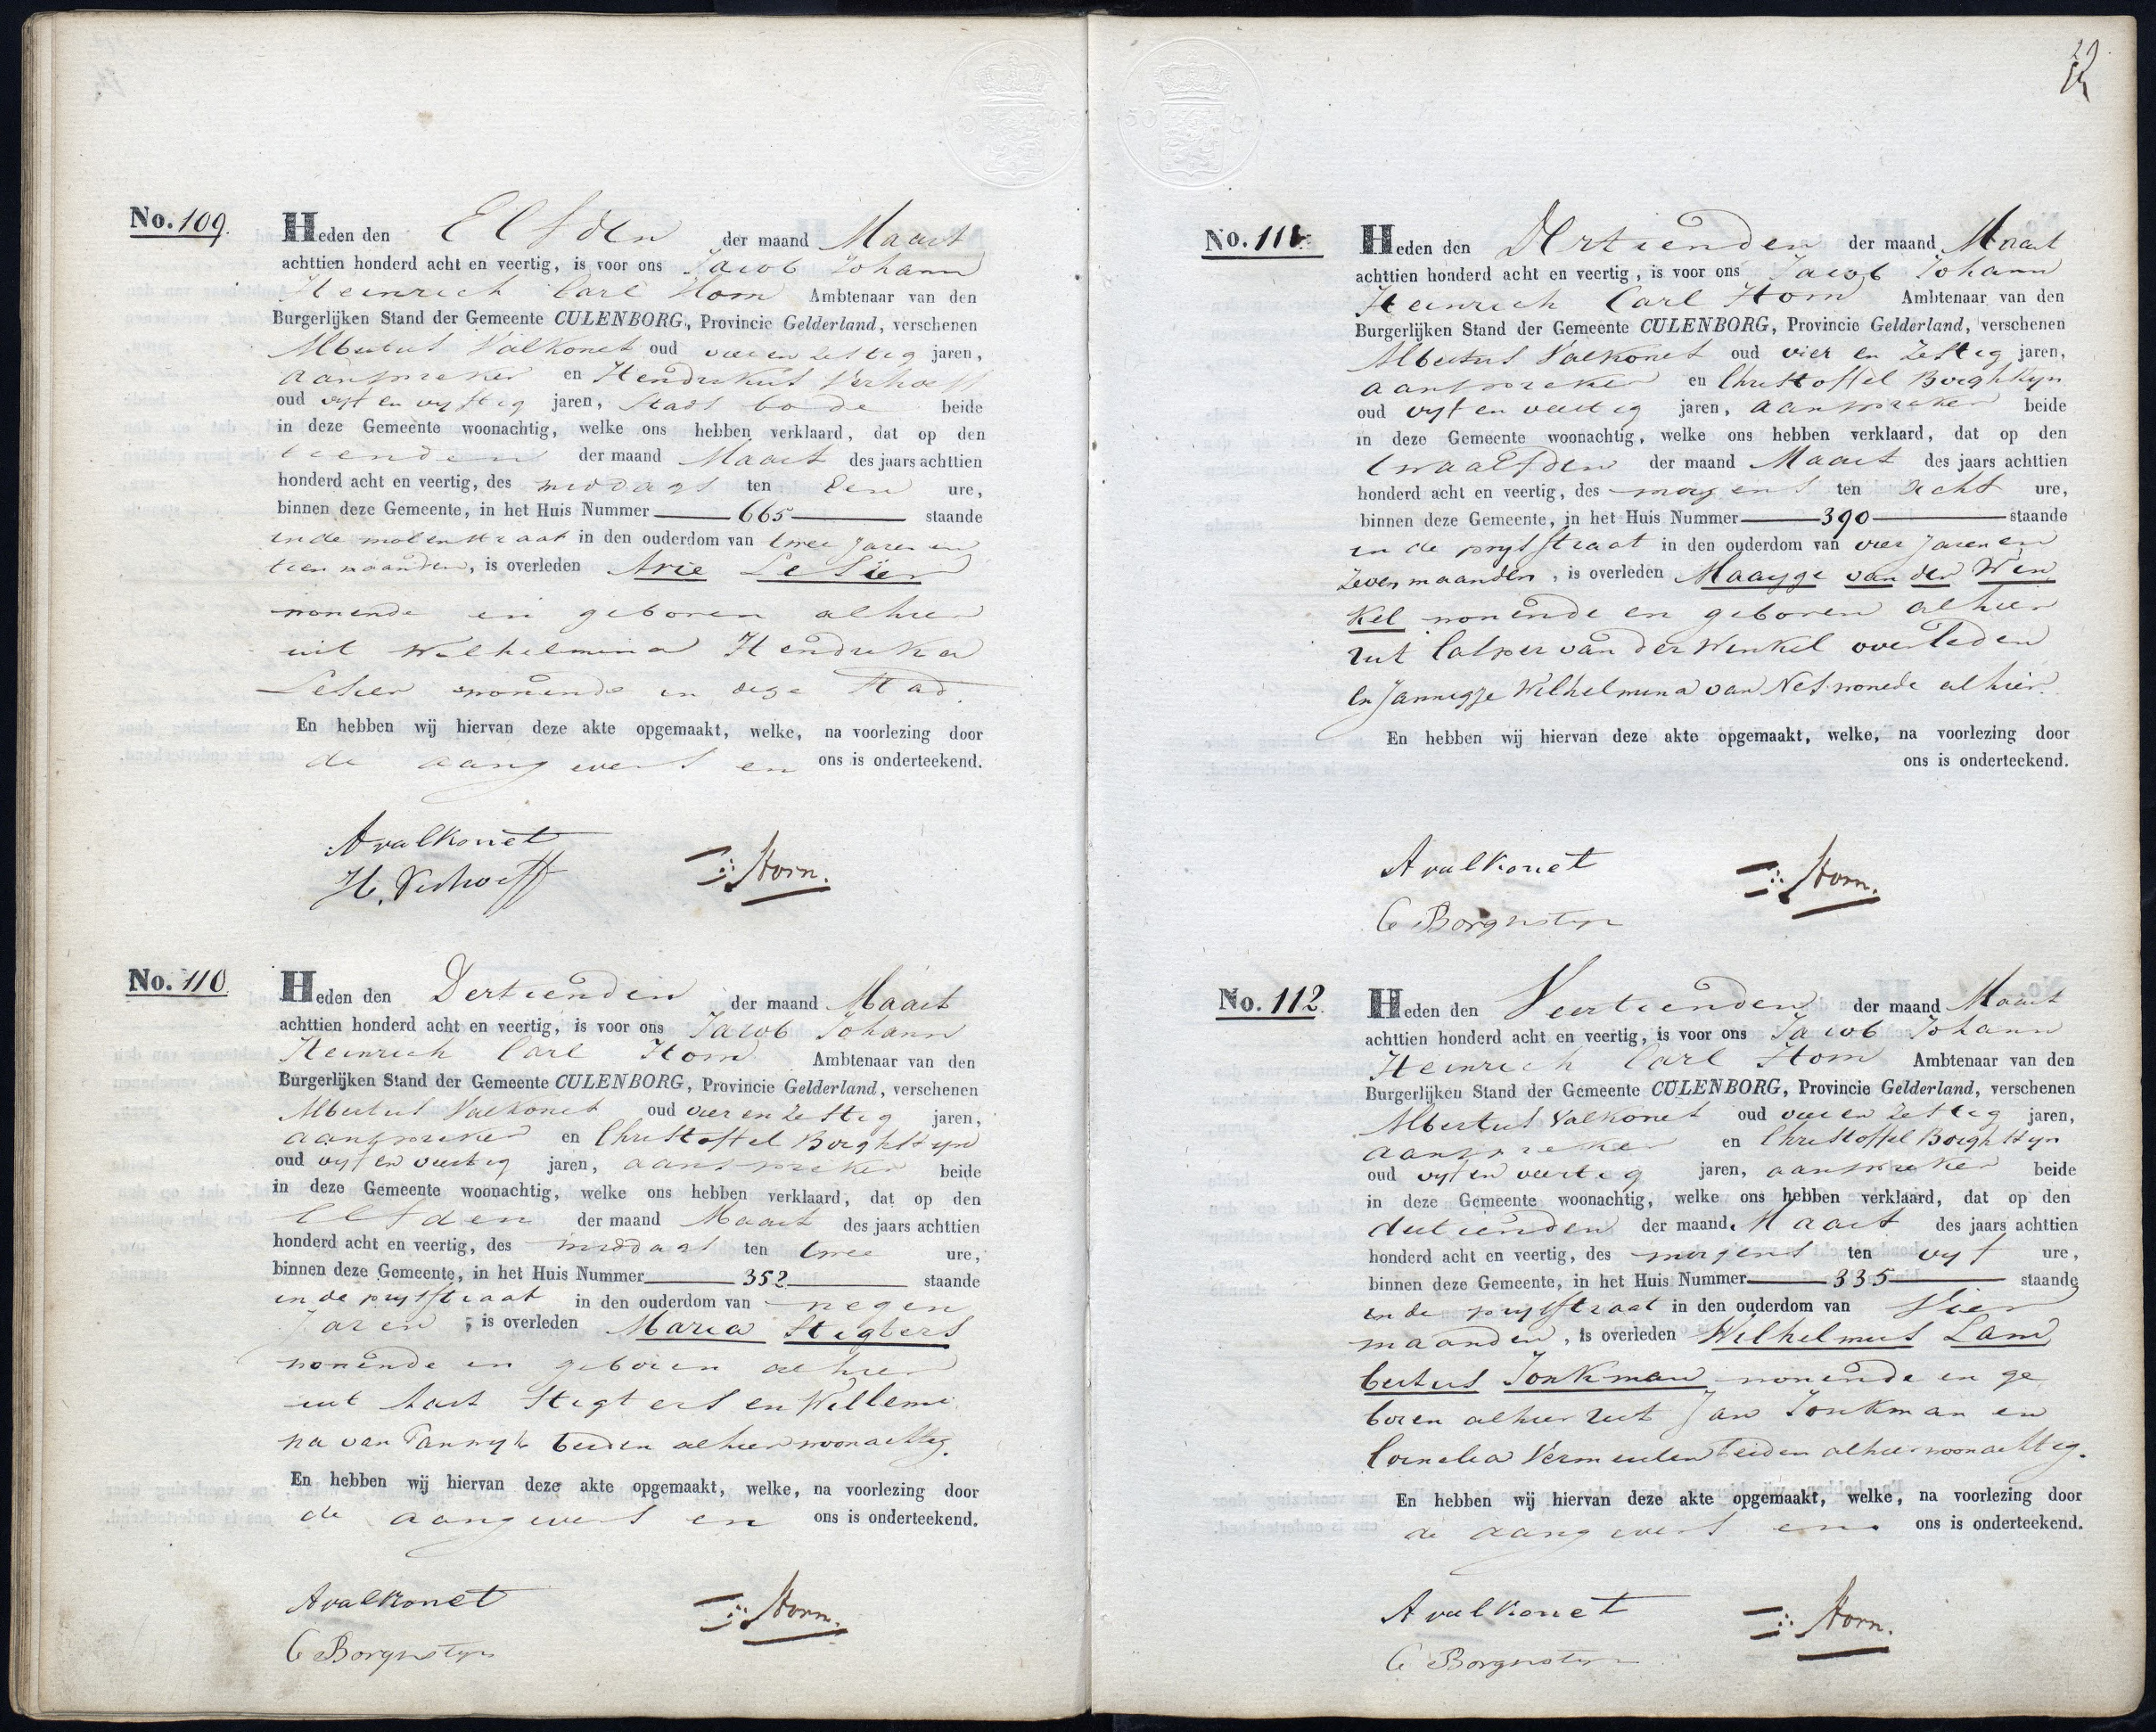 No. 109.
Heden den Elfden der maand Maart
achttien honderd acht en veertig, is voor ons Jacob Johann
Heinrich Carl Horn Ambtenaar van den
Burgerlijken Stand der Gemeente CULENBORG, Provincie Gelderland, verschenen
Albertus Valkonet oud vier en zestig jaren,
aanspreker en Hendrikus Verhoeff
oud vyf en vyftig jaren, Stads bode beide
in deze Gemeente woonachtig, welke ons hebben verklaard, dat op den
tienden der maand Maart des jaars achttien
honderd acht en veertig, des middags ten Een ure,
binnen deze Gemeente, in het Huis Nummer 665 staande
in de molenstraat in den ouderdom van twee Jaren en
tien maanden, is overleden Arie LeSier
wonende en geboren alhier
uit Wilhelmina Hendrika
Lesier wonende in deze Stad.
En hebben wij hiervan deze akte opgemaakt, welke, na voorlezing door
de aangevers en ons is onderteekend.
A valkonet
H. Verhoeff
Horn.
No. 110
Heden den Dertienden der maand Maart
achttien honderd acht en veertig, is voor ons Jacob Johann
Heinrich Carl Horn Ambtenaar van den
Burgerlijken Stand der Gemeente CULENBORG, Provincie Gelderland, verschenen
Albertus Valkonet oud vier en zestig jaren,
aanspreker en Christoffel Borghstyn
oud vyf en veertig jaren, aanspreker beide
in deze Gemeente woonachtig, welke ons hebben verklaard, dat op den
Elfden der maand Maart des jaars achttien
honderd acht en veertig, des middags ten twee ure,
binnen deze Gemeente, in het Huis Nummer 352 staande
in de prysstraat in den ouderdom van negen
Jaren, is overleden Maria Stigters
wonende en geboren alhier
uit Aart Stigters en Willemi
na van Tannyk beiden alhier woonachtig.
En hebben wij hiervan deze akte opgemaakt, welke, na voorlezing door
de aangevers en ons is onderteekend.
A valkonet
C Borgnstyn
Horn.
29
No. 111.
Heden den Dertienden der maand Maart
achttien honderd acht en veertig, is voor ons Jacob Johann
Heinrich Carl Horn Ambtenaar van den
Burgerlijken Stand der Gemeente CULENBORG, Provincie Gelderland, verschenen
Albertus Valkonet oud vier en zestig jaren,
aanspreker en Christoffel Borghstyn
oud vyf en veertig jaren, aanspreker beide
in deze Gemeente woonachtig, welke ons hebben verklaard, dat op den
twaalfden der maand Maart des jaars achttien
honderd acht en veertig, des morgens ten acht ure,
binnen deze Gemeente, in het Huis Nummer 390 staande
in de prysstraat in den ouderdom van vier Jaren en
zeven maanden, is overleden Maaygje van der Win
kel wonende en geboren alhier
uit Casper van der Winkel overleden
en Jannigje Wilhelmina van Nes wonede alhier.
En hebben wij hiervan deze akte opgemaakt, welke, na voorlezing door
ons is onderteekend.
A valkonet
C Borgnstyn
Horn.
No. 112.
Heden den Veertienden der maand Maart
achttien honderd acht en veertig, is voor ons Jacob Johann
Heinrich Carl Horn Ambtenaar van den
Burgerlijken Stand der Gemeente CULENBORG, Provincie Gelderland, verschenen
Albertus Valkonet oud vier en zestig jaren,
aanspreker en Christoffel Borghstyn
oud vyf en veertig jaren, aanspreker beide
in deze Gemeente woonachtig, welke ons hebben verklaard, dat op den
dertienden der maand Maart des jaars achttien
honderd acht en veertig, des morgens ten vyf ure,
binnen deze Gemeente, in het Huis Nummer 335 staande
in de prysstraat in den ouderdom van Vier
maanden, is overleden Wilhelmus Lam
bertus Jonkman wonende en ge
boren alhier uit Jan Jonkman en
Cornelia Vermeulen beiden alhier woonachtig.
En hebben wij hiervan deze akte opgemaakt, welke, na voorlezing door
de aangevers en ons is onderteekend.
A valkonet
C Borgnstyn
Horn.